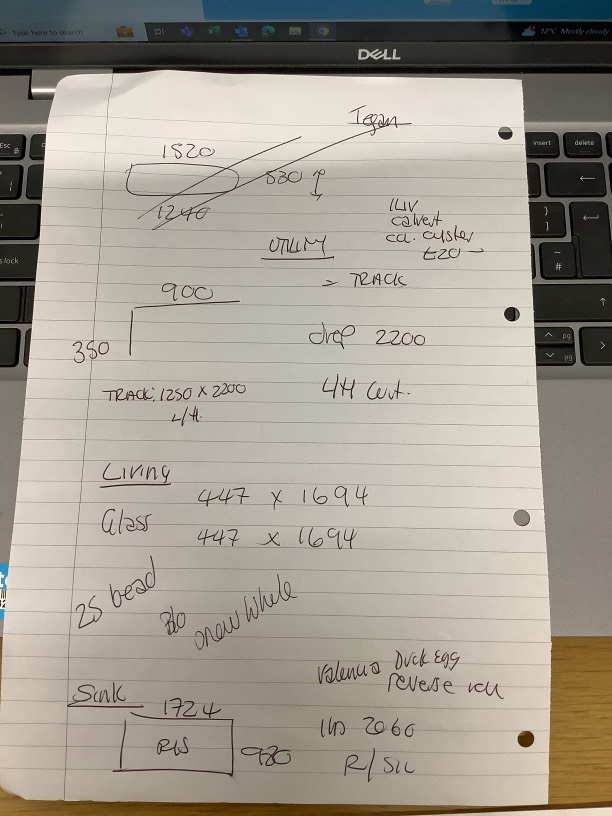 Type here to search
12°C Mostly cloudy
DELL
Esc
insert
delete
lock
Tegan
1820
530
1240
ILIV
calvert
UTILITY
= TRACK
900
350
drop 2200
TRACK: 1250 x 2200
L/H.
L/H Curt.
Living
447 x 1694
Glass
447 x 1694
25 bead
snow white
Valencia Duck Egg
reverse roll
Sink
1724
R/S
2060
R/SIL